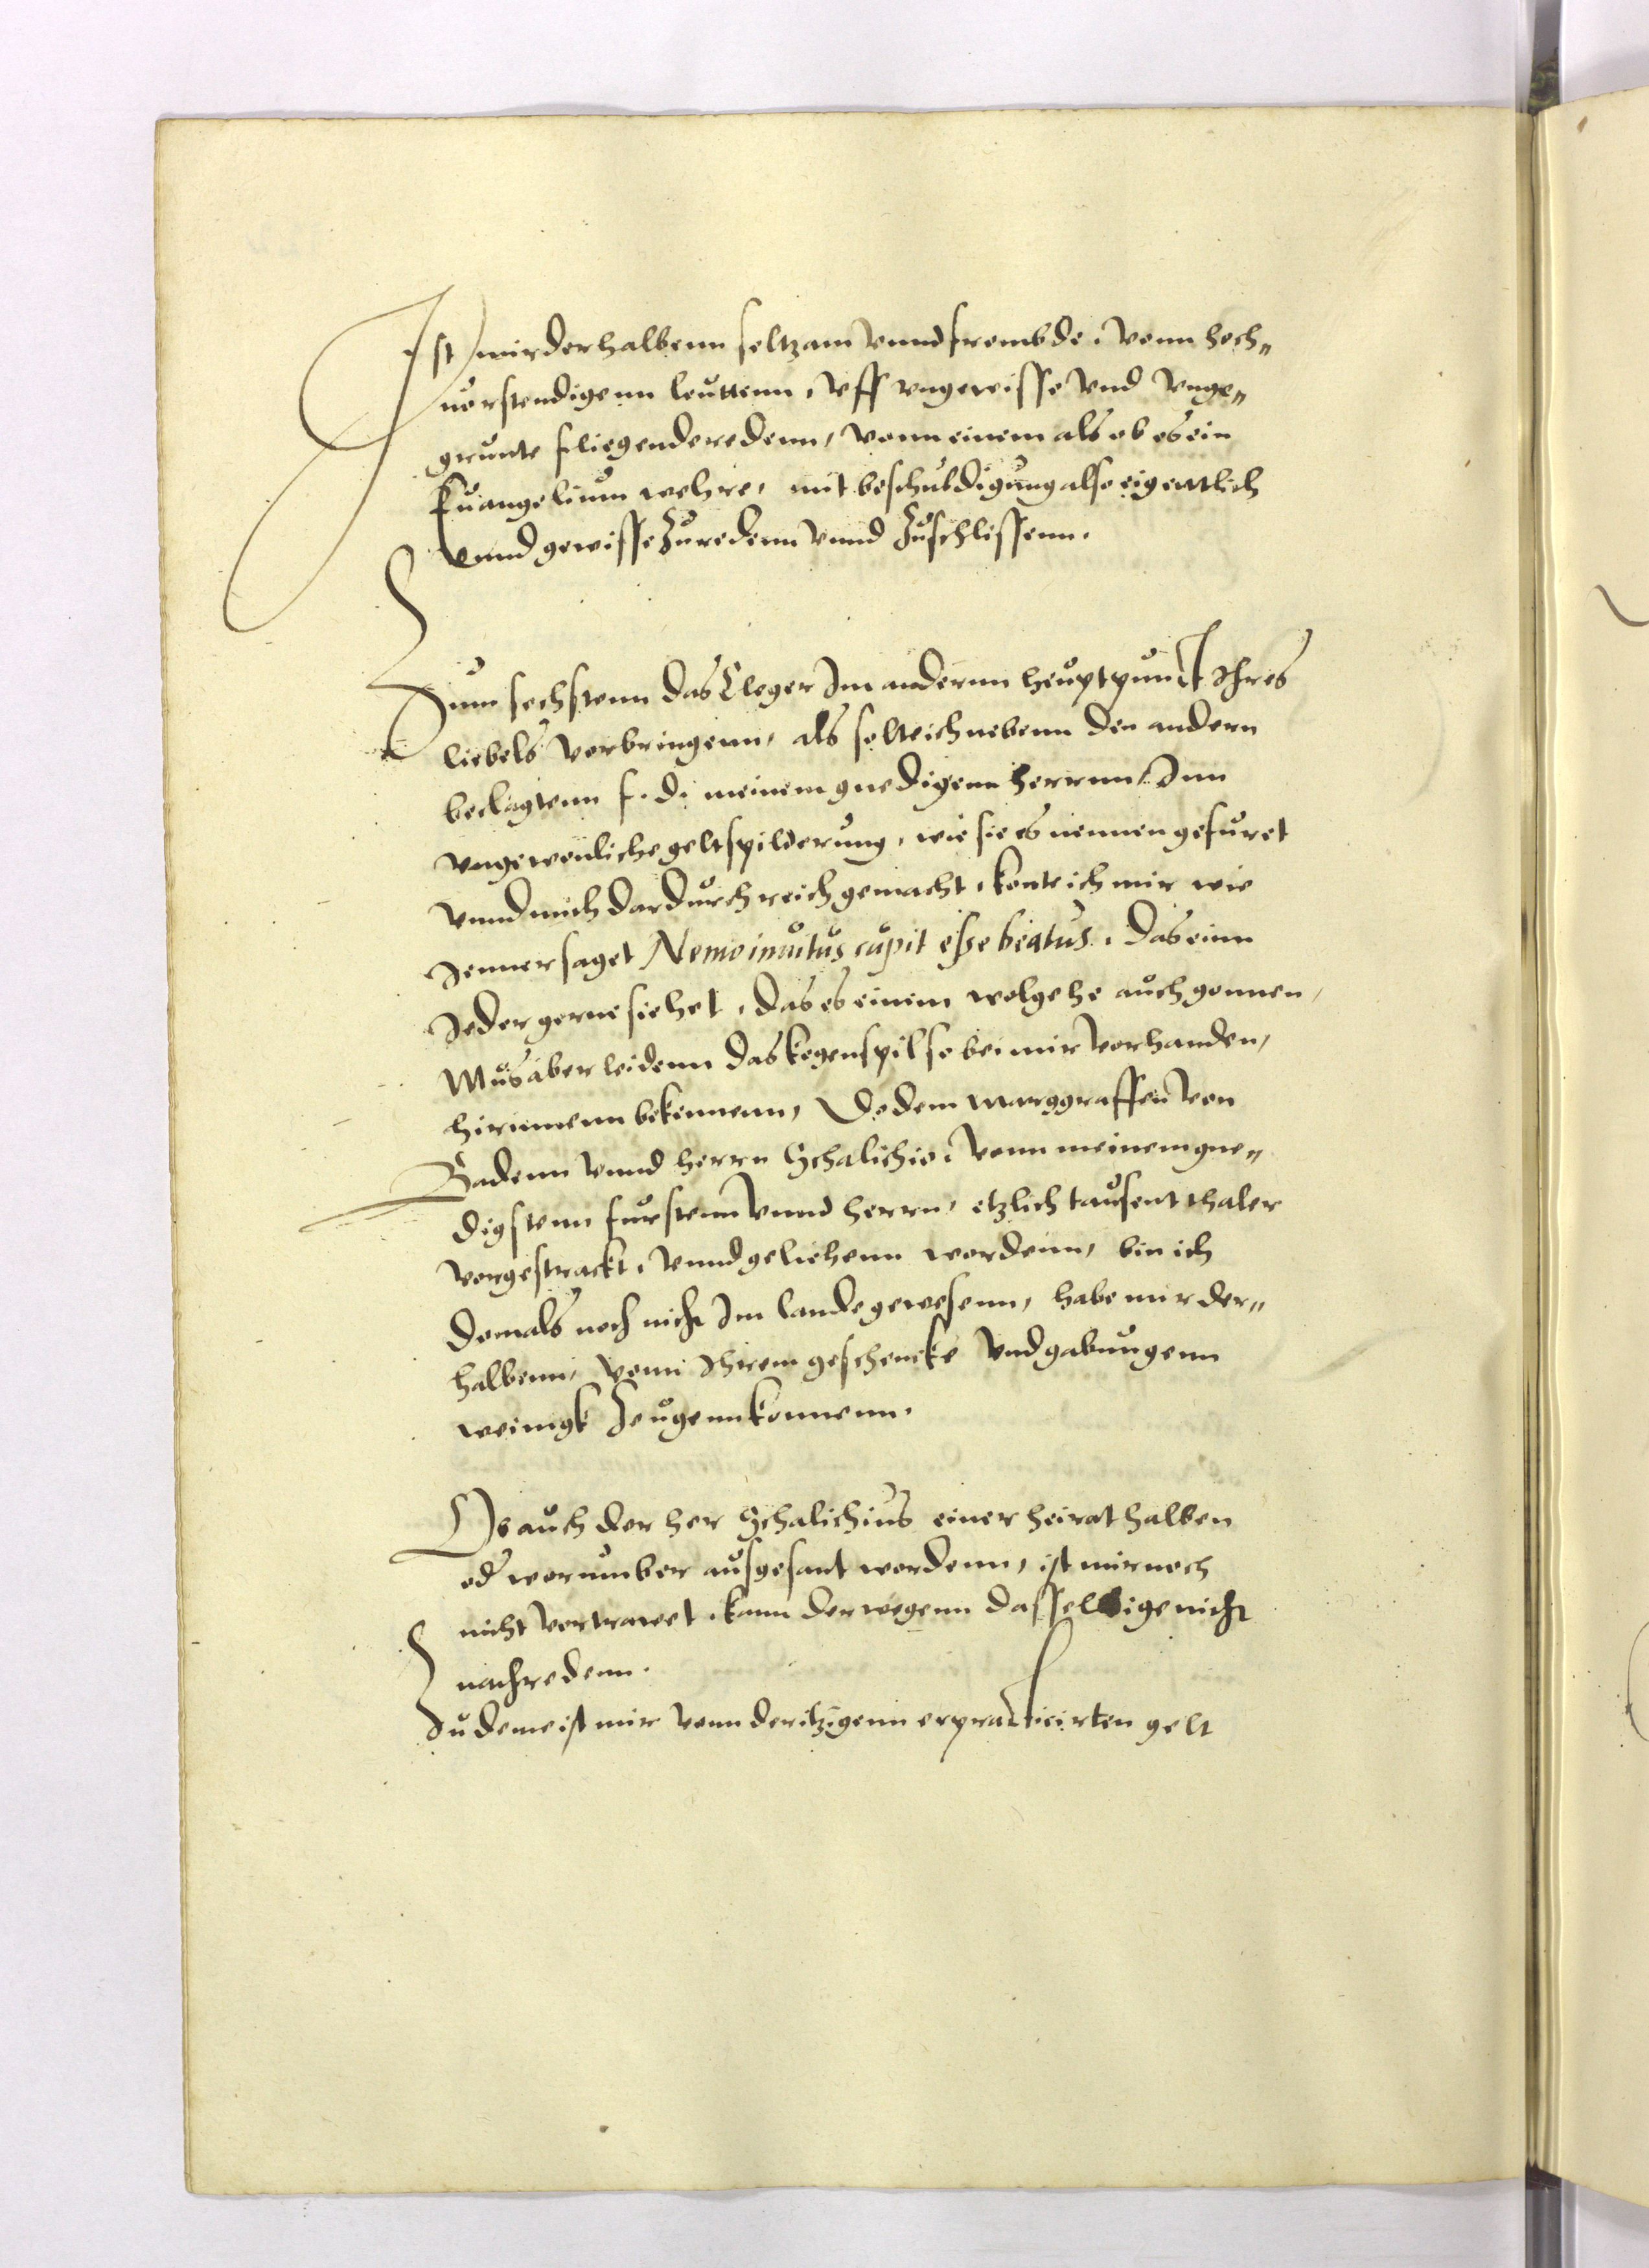 Ist mir derhalbenn seltzam vnnd frembde, vonn hoch„
uerstendigenn leuttenn, vff vngewisse vnd vnge„
grunte fliegende redenn, vonn einem als ob es ein
Euangelium wehre, mit beschuldigung also eigentlich
vnnd gewisse zu redenn vnnd zuschlissenn.
Zum sechstenn das Cleger Im andernn heuptpunct Ihres
liebels vorbringenn, als solte ich nebenn den andern
beclagtenn f. d. meinem gnedigenn herrnn, Inn
vngewenliche geltspilderung, wie sie es nennen gefuret
vnnd mich dardurch reich gemacht, konte ich mir wie
Jenner saget Nemo inuitus cupit esse beatus. das einn
Jeder gerne siehet, das es einem wolgehe auch gonnen,
Mus aber leidenn das kegenspil so bei mir vorhanden,
hirinnenn bekennenn, Do dem Marggraffen von
Badenn vnnd herrn Schalichio, vonn meinem gne„
digstenn furstenn vnnd herrn, etzlich tausent thaler
vorgestrackt, vnnd geliehenn wordenn, bin ich
domals noch nicht Im lande gewesenn, habe mir der„
halbenn, vonn Ihrem geschencke vnd gabungenn
weinigk zeugenn konnenn.
Ob auch der her Schalichius einer heirat halben
od worumber ausgesant wordenn, ist mir noch
nicht vortrawet, kann derwegenn dasselbige nicht
nachredenn.
Zu deme ist mir vonn deritzigenn erpracticirten gelt